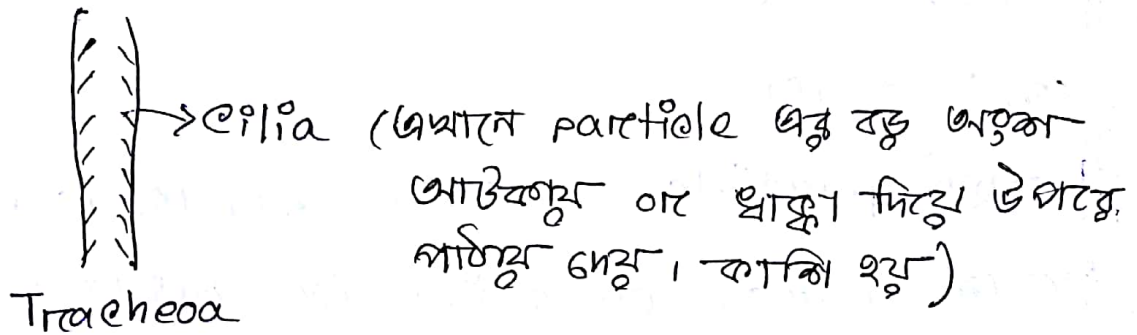 Cilia (এখানে particle এর বড় অংশ
আটকায় or ধাক্কা দিয়ে উপরে
পাঠায় দেয়। কাশি হয়)
Tracheoa